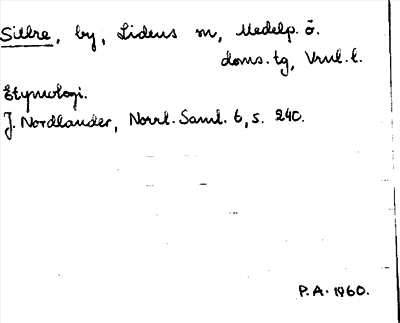 Sillre, by, Lidens sn, Medelp. ö.
doms.tg, Vnrl.l.
Etymologi.
J. Nordlander, Norrl. Saml. 6, s. 240.
P.A. 1960.